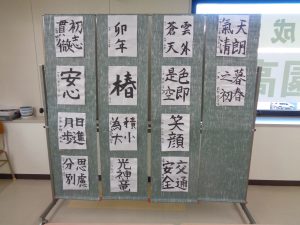 天朗
氣清
暮春
之初
雲
蒼天
色即
是空
笑顔
交通
安全
卯年
椿
積小
為大
光神竜
初志
貫徹
安心
日進
月歩
思慮
分別
成
高